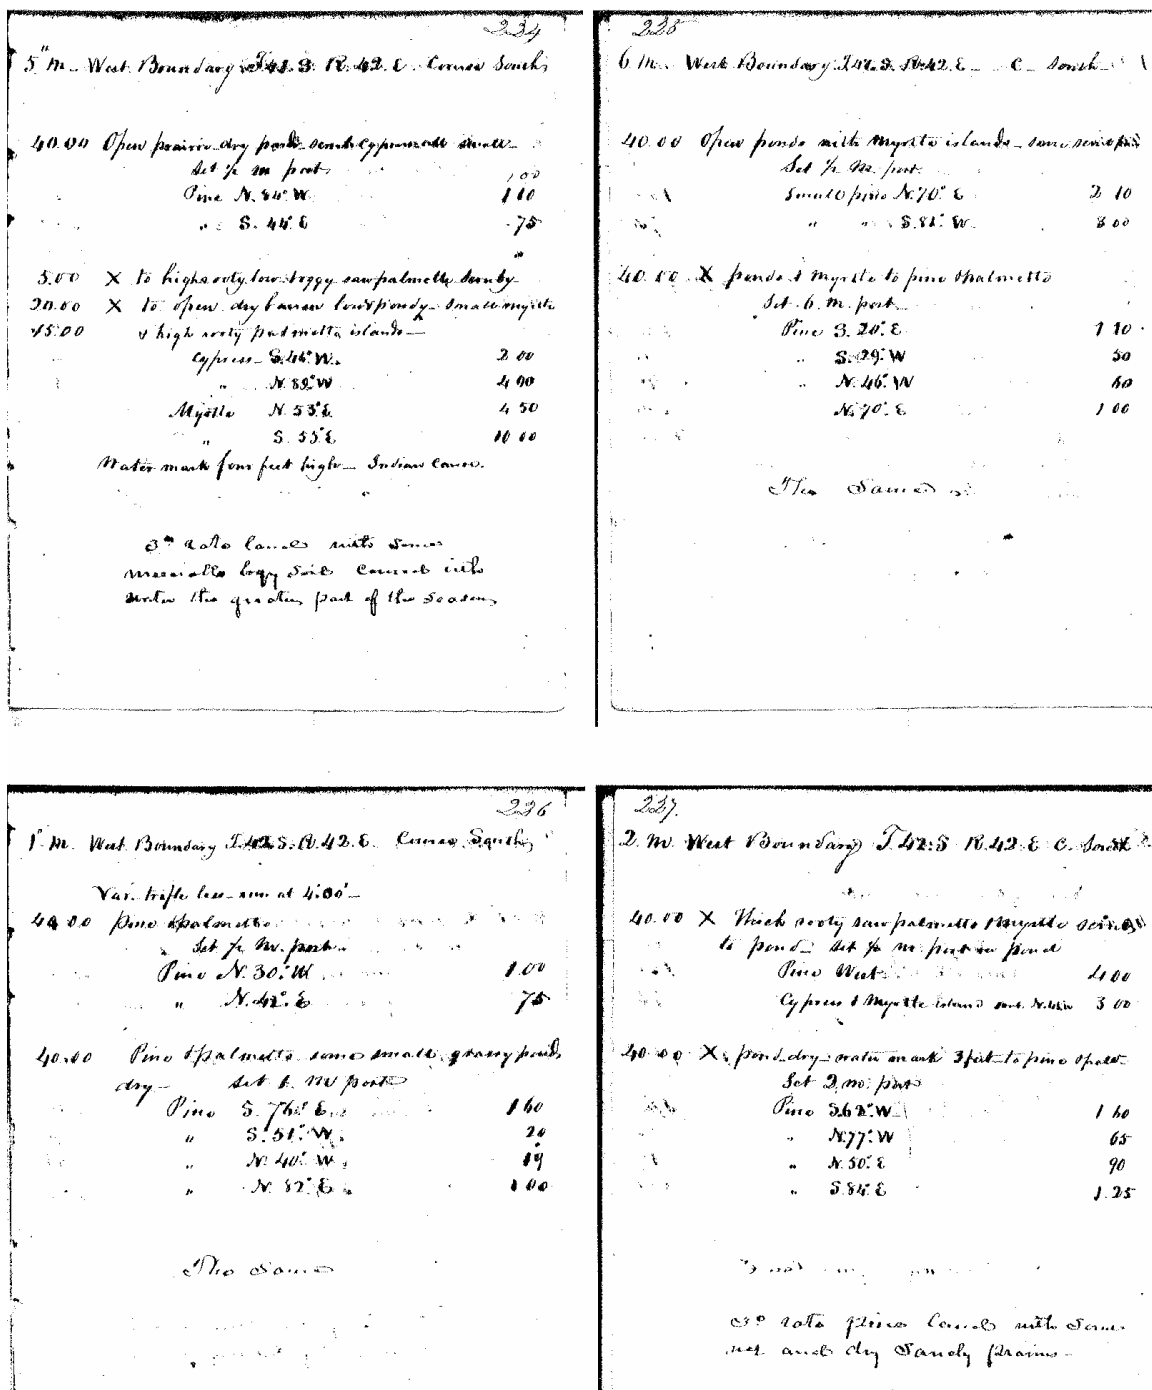 234
5" M. West Boundary T.41.S. R.42.E. Course South
40.00 Open prairie dry ponds small
Set 1/2 m post
1 00
Pine N. 84° W. 1 10
" S. 44° E 75
5.00 X to high rooty low boggy sawpalmetto
20.00 X to open dry barren low & pondy small myrtle
15.00 & high rooty palmetto islands
Cypress S. 46° W. 2 00
" N. 89° W 4 00
Myrtle N. 53° E. 4 50
" S. 55° E 10 00
Water mark four feet high Indian Canoe.
3rd rate land with some
boggy soil Covered with
water the greater part of the Season
235
6 M. West Boundary T.41.S. R.42.E C South
40.00 Open ponds with Myrtle islands some
Set 1/2 M. post
Small pine N. 70° E 2 10
" " S. 81° W. 3 00
40.00 X ponds & Myrtle to pine & palmetto
Set 6. M. post
Pine S. 20° E 1 10
" S. 29° W 50
" N. 46° W 60
N. 70° E 1 00
The Same
236
1" M. West Boundary T.42.S. R.42.E. Course South
Var. trifle less run at 4.00'
40.00 Pine & palmetto
Set 1/2 M. post
Pine N. 30° W 1.00
" N. 42° E 75
40.00 Pine & palmetto some small grassy ponds
dry Set 1. M post
Pine S. 76° E. 1 60
" S. 51° W. 20
" N. 40° W. 19
" N. 82° E. 1 00
The Same
237.
2 M West Boundary T.42.S R.42.E C. South
40.00 X Thick rooty sawpalmetto & Myrtle
to pond set 1/2 m. post in pond
Pine West 4 00
Cypress & Myrtle island 3 00
40.00 X pond dry water mark 3 feet to pine & palm
Set 2 m. post
Pine S. 62° W. 1 60
" N. 77° W 65
" N. 50° E 90
" S. 84° E 1.25
3rd rate pine land with some
wet and dry Sandy prairies